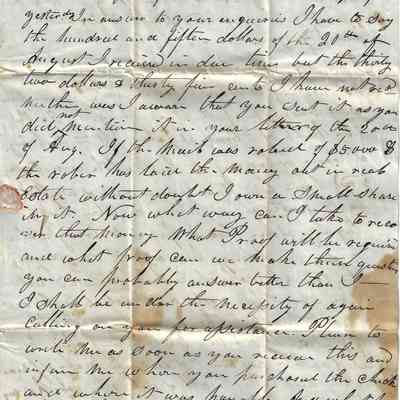 yesterday In answer to your enquiries I have to say
the hundred and fifteen dollars of the 20th of
August I received in due time but the thirty
two dollars & thirty five cents I have not recd
neither was I aware that you sent it as you
did not mention it in your letter of the 20th
of Aug. If the Mail was robed of $5000 &
the rober has laid the money out in real
Estate without doubt I own a small share
in it. Now what way can I take to reco
ver that money What Proof will be required
and what proof can we make these questions
you can probably answer better than I —
I shall be under the necessity of again
calling on you for assistance. Please to
write me as soon as you receive this and
inform me where you purchased the check
and where it was payable